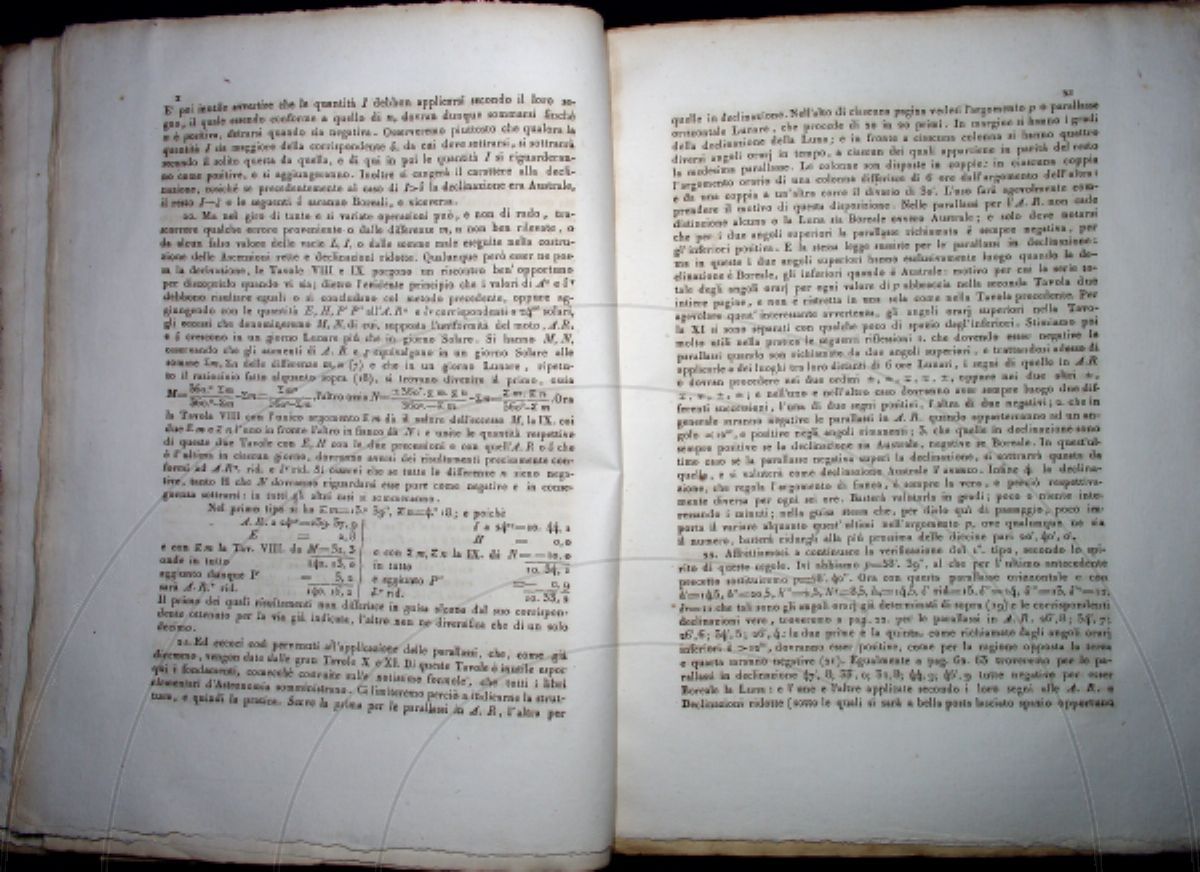 x
E' poi inutile avvertire che le quantità I debbon applicarsi secondo il loro se-
gno, il quale essendo conforme a quello di n, dovran dunque sommarsi finchè
n è positiva, detrarsi quando sia negativa. Osserveremo piuttosto che qualora la
quantità I sia maggiore della corrispondente δ, da cui deve sottrarsi, si sottrarrà
secondo il solito questa da quella, e di qui in poi le quantità I si riguarderan-
no come positive, e si aggiungeranno. Inoltre si cangerà il carattere alla decli-
nazione, cosichè se precedentemente al caso di I>δ la declinazione era Australe,
il resto I—δ e le seguenti δ saranno Boreali, e viceversa.
20. Ma nel giro di tante e sì variate operazioni può, e non di rado, tra-
scorrere qualche errore proveniente o dalle differenze m, n non ben rilevate, o
da alcun falso valore delle varie L, I, o dalle somme male eseguite nella costru-
zione delle Ascensioni rette e declinazioni ridotte. Qualunque però esser ne pos-
sa la derivazione, le Tavole VIII e IX porgono un riscontro ben' opportuno
per discoprirlo quando vi sia; dietro l'evidente principio che i valori di
debbono risultare eguali o si concludano col metodo precedente, oppure ag-
giungendo con le quantità E, H, P' P'' all'A.R. e corrispondenti a solari,
gli eccessi che denomineremo M, N, di cui, supposta l'uniformità del moto, A.R.
e δ crescono in un giorno Lunare più che in giorno Solare. Si hanno M, N,
osservando che gli aumenti di A. R. e equivalgono in un giorno Solare alle
somme Σm, Σn delle differenze m, n (7) e che in un giorno Lunare, ripetu-
to il raziocinio fatto alquanto sopra (18), si trovano divenire il primo, ossia
la Tavola VIII con l'unico argomento Σm dà il valore dell'eccesso M, la IX. coi
due Σm e Σn, l'uno in fronte l'altro in fianco dà N: e unite le quantità respettive
di queste due Tavole con E, H con le due precessioni e con quell'A.R. o δ che
è l'ultima in ciascun giorno, dovranno aversi dei risultamenti precisamente con-
formi ad A.R. rid. e rid. Si osservi che se tutte le differenze n sieno nega-
tive, tanto H che N dovranno riguardarsi esse pure come negative e in conse-
guenza sottrarsi: in tutti gli altri casi si sommeranno.
Nel primo tipo si ha Σm=13.° 39', Σn=4.° 18; e poichè
e con Σm la Tav. VIII. dà M=
onde in tutto
aggiunto dunque P'
sarà A.R. rid.
e con Σm, Σn la IX. dà N=
in tutto
e aggiunto P''
rid.
Il primo dei quali risultamenti non differisce in guisa alcuna dal suo corrispon-
dente ottenuto per la via già indicata, l'altro non ne diversifica che di un solo
decimo.
21. Ed eccoci così pervenuti all'applicazione delle parallassi, che, come già
dicemmo, vengon date dalle gran Tavole X e XI. Di queste Tavole è inutile espor
qui i fondamenti, comechè costruite sulle notissime formole, che tutti i libri
elementari d'Astronomia somministrano. Ci limiteremo perciò a indicarne la strut-
tura, e quindi la pratica. Serve la prima per le parallassi in A. R, l'altra per
xi
quelle in declinazione. Nell'alto di ciascuna pagina vedesi l'argomento p o parallasse
orizzontale Lunare, che procede di 20 in 20 primi. In margine si hanno i gradi
della declinazione della Luna; e in fronte a ciascuna colonna si hanno quattro
diversi angoli orarj in tempo, a ciascun dei quali appartiene in parità del resto
la medesima parallasse. Le colonne son disposte in coppie: in ciascuna coppia
l'argomento orario di una colonna differisce di 6 ore dall'argomento dell'altra:
e da una coppia a un'altra corre il divario di 30'. L'uso farà agevolmente com-
prendere il motivo di questa disposizione. Nelle parallassi per l'A. R. non cade
distinzione alcuna o la Luna sia Boreale ovvero Australe; e solo deve notarsi
che per i due angoli superiori la parallasse richiamata è sempre negativa, per
gl'inferiori positiva. E la stessa legge sussiste per le parallassi in declinazione:
ma in questa i due angoli superiori hanno esclusivamente luogo quando la de-
clinazione è Boreale, gli inferiori quando è Australe: motivo per cui la serie to-
tale degli angoli orarj per ogni valore di p abbraccia nella seconda Tavola due
intiere pagine, e non è ristretta in una sola come nella Tavola precedente. Per
agevolare quest' interessante avvertenza, gli angoli orarj superiori nella Tavo-
la XI si sono separati con qualche poco di spazio dagl'inferiori. Stimiamo poi
molto utili nella pratica le seguenti riflessioni 1. che dovendo esser negative le
parallassi quando son richiamate da due angoli superiori, e trattandosi adesso di
applicarle a dei luoghi tra loro distanti di 6 ore Lunari, i segni di quelle in A.R
e dovran procedere nei due ordini oppure nei due altri
e nell'uno e nell'altro caso dovranno aver sempre luogo due dif-
ferenti successioni, l'una di due segni positivi, l'altra di due negativi; 2. che in
generale saranno negative le parallassi in A.R. quando apparterranno ad un an-
golo o positive negli angoli rimanenti; 3. che quelle in declinazione sono
sempre positive se la declinazione sia Australe, negative se Boreale. In quest'ul-
timo caso se la parallasse negativa superi la declinazione, si sottrarrà questa da
quella, e si valuterà come declinazione Australe l'avanzo. Infine 4. la declina-
zione, che regola l'argomento di fianco, è sempre la vera, e perciò respettiva-
mente diversa per ogni sei ore. Basterà valutarla in gradi; poco o niente inte-
ressando i minuti; nella guisa stessa che, per dirlo quì di passaggio, poco im-
porta il variare alquanto quest' ultimi nell'argomento p, ove qualunque ne sia
il numero, basterà ridurgli alla più prossima delle diecine pari 20', 40', 0'.
22. Affrettiamoci a continuare la verificazione del 1°. tipo, secondo lo spi-
rito di queste regole. Ivi abbiamo p=58'. 39'', al che per l'ultimo antecedente
precetto sostituiremo p=58'. 40''. Ora con questa parallasse orizzontale e con
che tali sono gli angoli orarj già determinati di sopra (19) e le corrispondenti
declinazioni vere, troveremo a pag. 22. per le parallassi in A. R. 26', 8; 34', 7;
26', 6; 34', 5; 26', 4: le due prime e la quinta, come richiamate dagli angoli orarj
inferiori dovranno esser positive, come per la ragione opposta la terza
e quarta saranno negative (21). Egualmente a pag. 62. 63 troveremo per le pa-
rallassi in declinazione tutte negative per esser
Boreale la Luna: e l'une e l'altre applicate secondo i loro segni alle A. R. e
Declinazioni ridotte (sotto le quali si sarà a bella posta lasciato spazio opportuno